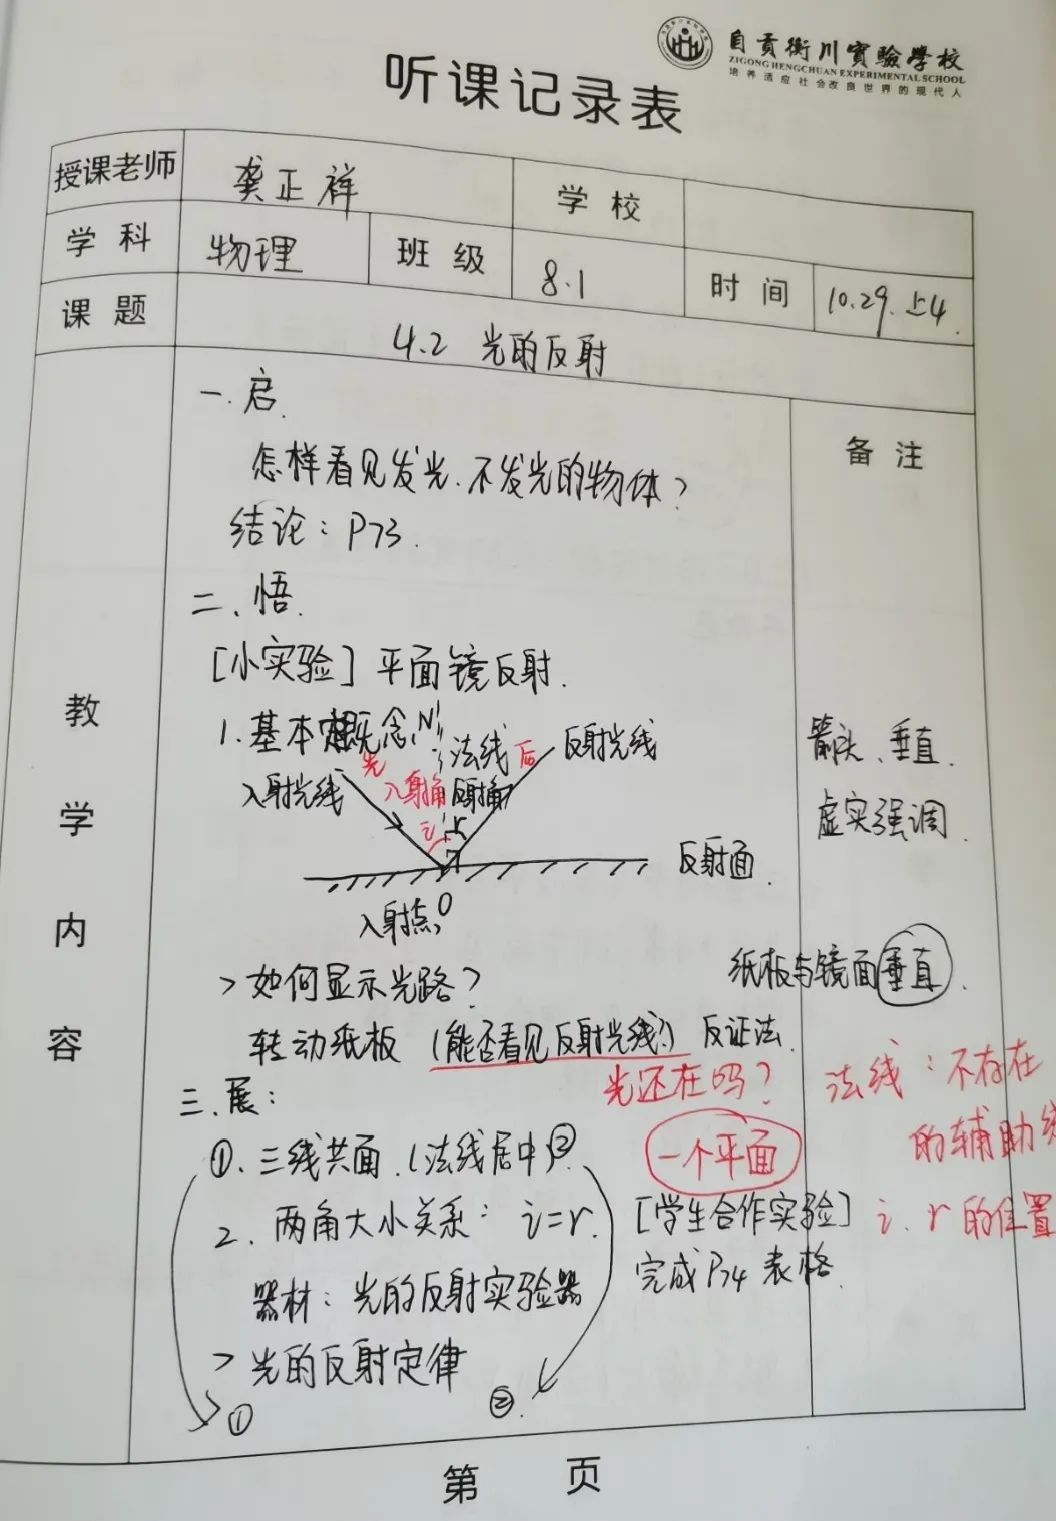 自贡衡川實驗學校
ZIGONG HENGCHUAN EXPERIMENTAL SCHOOL
培养适应社会改良世界的现代人
听课记录表
授课老师 龚正祥 学校
学科 物理 班级 8.1 时间 10.29.上4.
课题 4.2 光的反射
教学内容
备注
一.启.
怎样看见发光、不发光的物体?
结论:P73.
二、悟.
[小实验]平面镜反射.
1.基本概念 N
先 法线 后 反射光线
入射光线 入射角 反射角
i r
反射面.
入射点 O
箭头、垂直.
虚实强调.
纸板与镜面垂直.
>如何显示光路?
转动纸板(能否看见反射光线?)反证法.
光还在吗?
法线:不存在
的辅助线
三、展:
①、三线共面.(法线居中)②
一个平面
2、两角大小关系:i=r.
[学生合作实验] i、r的位置
完成P74表格.
器材:光的反射实验器
>光的反射定律
① ②.
第 页